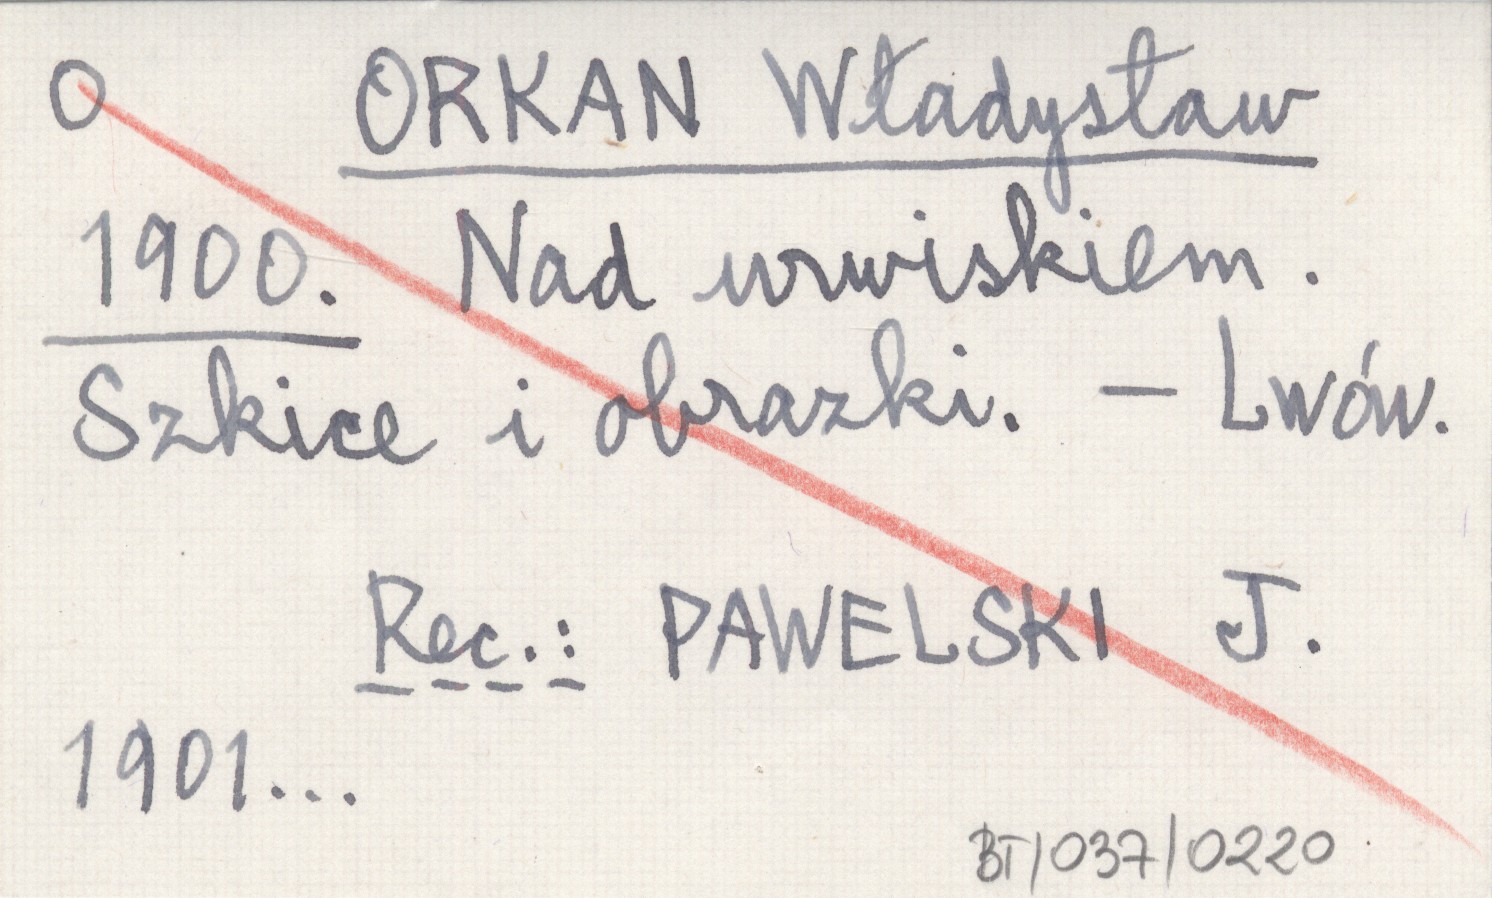 O ORKAN Władysław
1900. Nad urwiskiem.
Szkice i obrazki. — Lwów.
Rec.: PAWELSKI J.
1901...
BT/037/0220